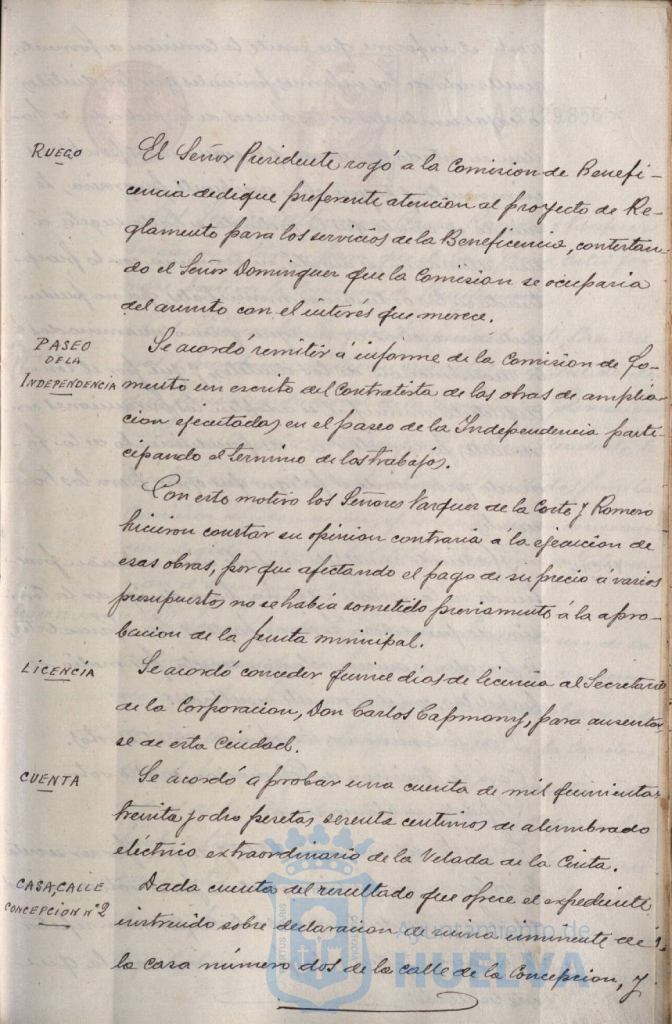 RUEGO
El Señor Presidente rogó a la Comision de Benefi-
cencia dedique preferente atencion al proyecto de Re-
glamento para los servicios de la Beneficencia, contestan-
do el Señor Dominguez que la Comision se ocuparia
del asunto con el interés que merece.
PASEO
DE LA
INDEPENDENCIA
Se acordó remitir á informe de la Comision de Fo-
mento un escrito del Contratista de las obras de amplia-
cion ejecutadas en el paseo de la Independencia parti-
cipando el termino de los trabajos.
Con esto motivo los Señores Vazquez de la Corte y Romero
hicieron constar su opinion contraria á la ejecucion de
esas obras, por que afectando el pago de su precio á varios
presupuestos no se habia sometido previamente á la apro-
bacion de la Junta municipal.
LICENCIA
Se acordó conceder quince dias de licencia al Secretario
de la Corporacion, Don Carlos Capmany, para ausentar
se de esta Ciudad.
CUENTA
Se acordó aprobar una cuenta de mil quinientas
treinta y ocho pesetas sesenta centimos de alumbrado
eléctrico extraordinario de la Velada de la Cinta.
CASA, CALLE
CONCEPCION Nº 2
Dada cuenta del resultado que ofrece el expediente
instruido sobre declaracion de ruina inminente de
la casa número dos de la calle de la Concepcion, y
Ayuntamiento de
HUELVA